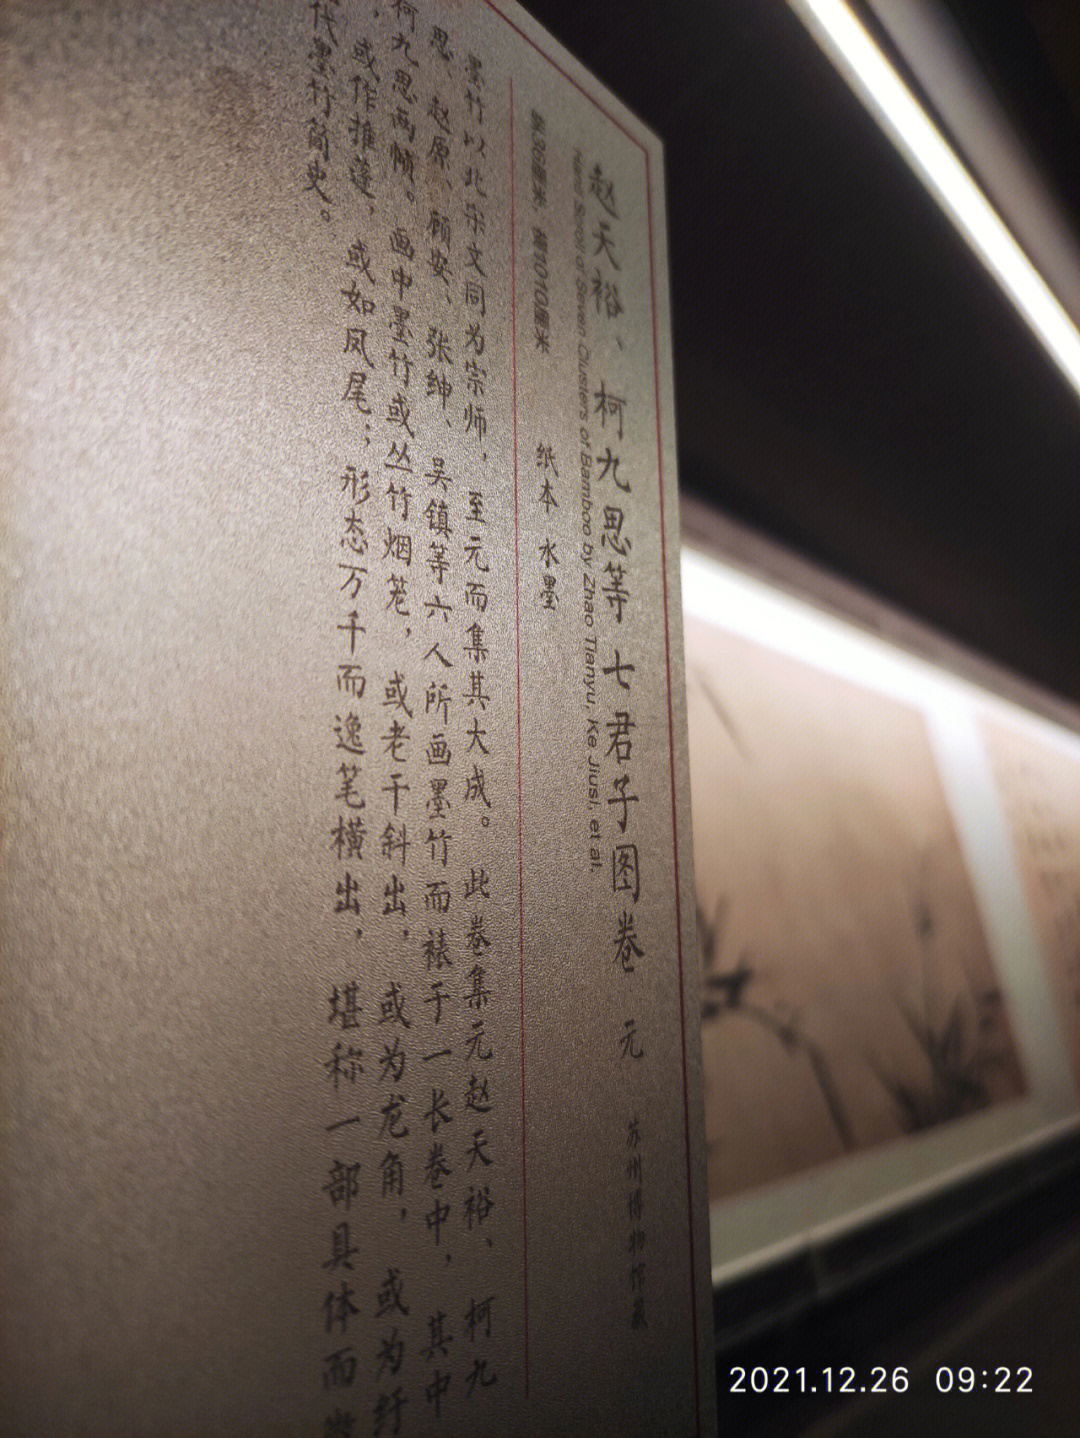 赵天裕、柯九思等七君子图卷 元 苏州博物馆藏
Hand Scroll of Seven Clusters of Bamboo by Zhao Tianyu, Ke Jiusi, et al.
1010厘米 纸本 水墨
墨竹以北宋文同为宗师，至元而集其大成。此卷集元赵天裕、柯九
思、赵原、顾安、张绅、吴镇等六人所画墨竹而裱于一长卷中，其中
柯九思两帧。画中墨竹或丛竹烟笼，或老干斜出，或为龙角，或为纤
，或作推篷，或如凤尾；形态万千而逸笔横出，堪称一部具体而
代墨竹简史。
2021.12.26 09:22